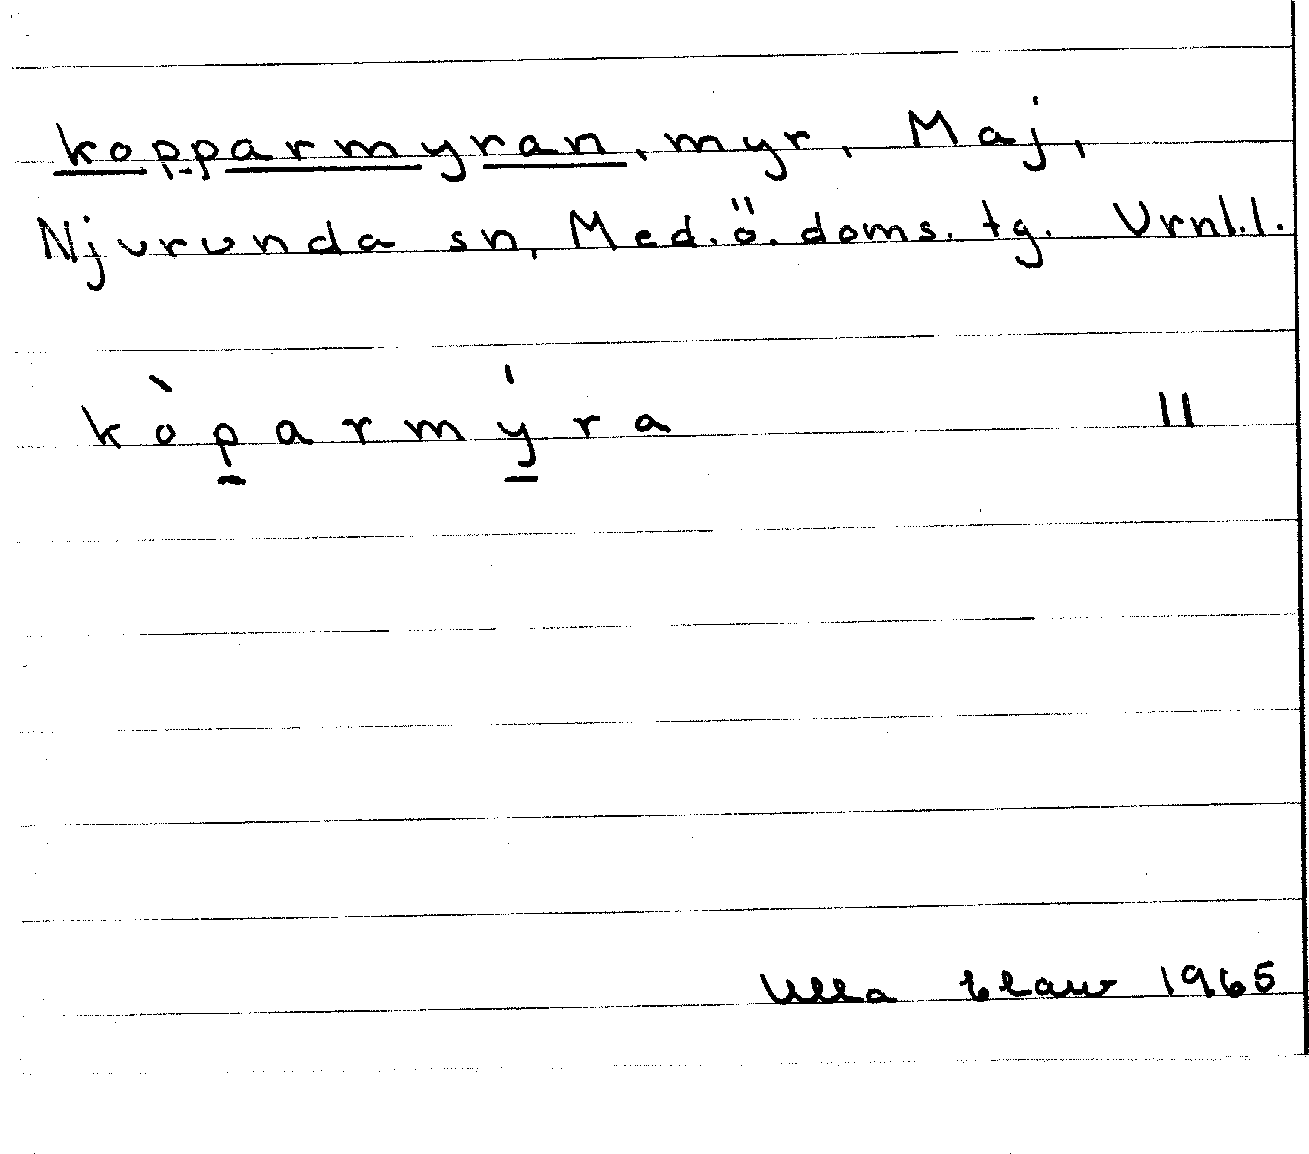 kopparmyran, myr, Maj,
Njurunda sn, Med.ö.doms.tg. Vrnl.l.
kòp̱armý̱ra 11
Ulla 1965